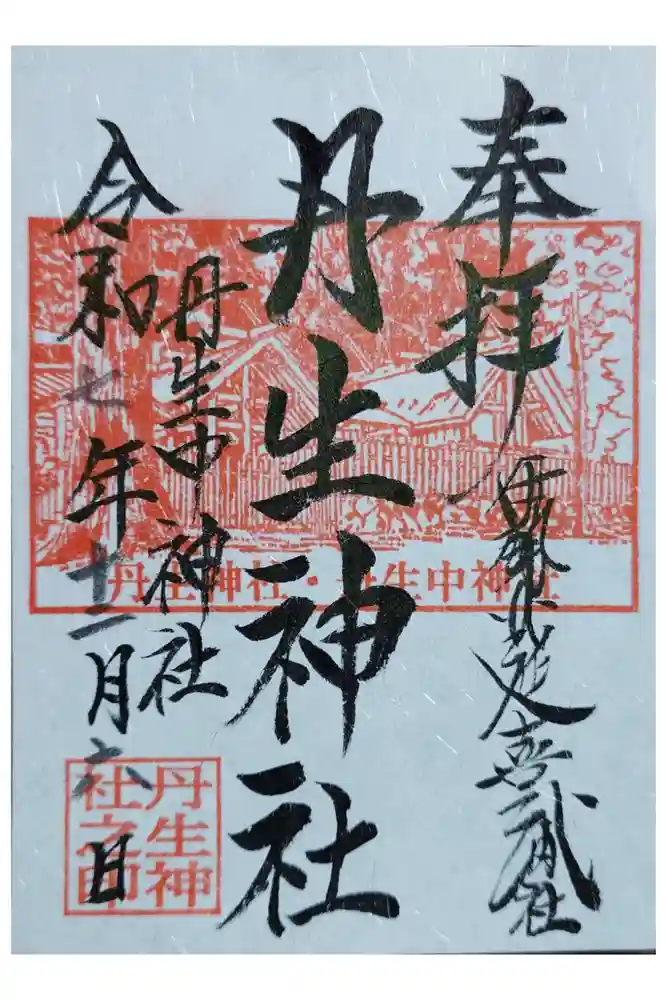 奉拝
延喜式内社
丹生神社
丹生中神社
令和七年十二月六日
丹生神社・丹生中神社
丹生神
社之印